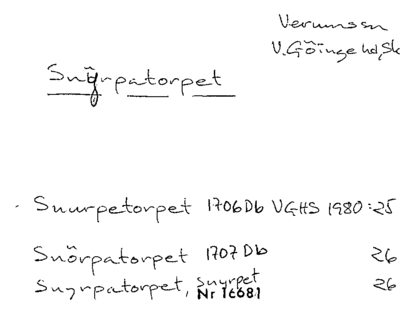 Verumssn
V. Göinge hd, Sk
Snörpatorpet
Snurpetorpet 1706 Db VGHS 1980:25
Snörpatorpet 1707 Db 26
Snyrpatorpet, Snyrpet 26
Nr 16681